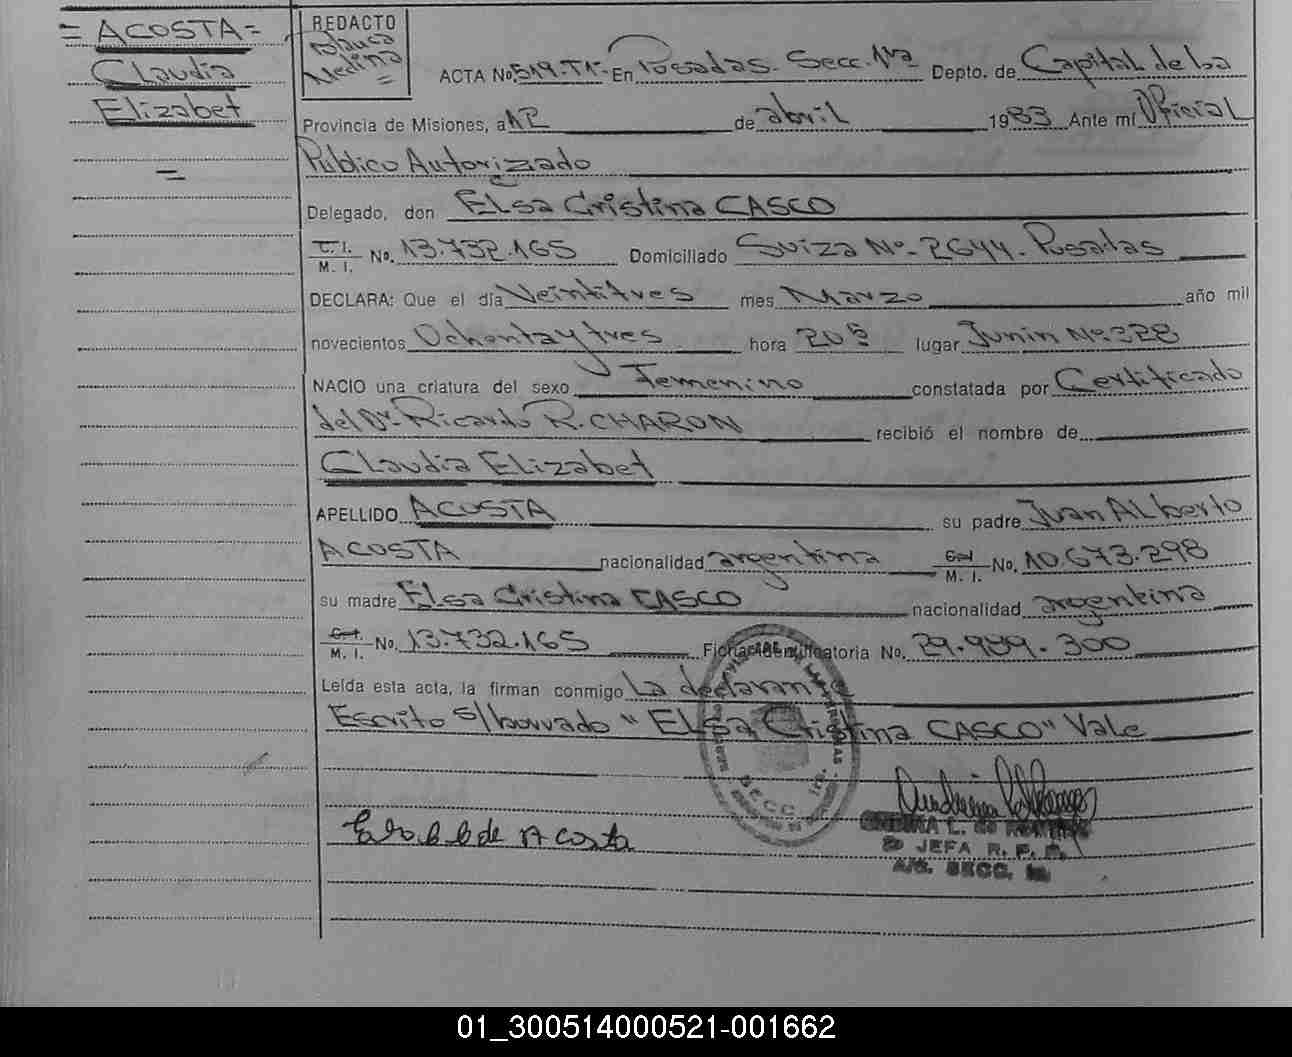 = ACOSTA =
Claudia
Elizabet
=
REDACTO
Blanca
Medina
=
ACTA No. 519. T1- En Posadas. Secc. 1ra Depto. de Capital de la
Provincia de Misiones, a 12 de abril 1983 Ante mí Oficial
Público Autorizado
Delegado, don Elsa Cristina CASCO
C. I.
M. I. No. 13.732.165 Domiciliado Suiza Nº- 2644. Posadas
DECLARA: Que el día Veintitres mes Marzo año mil
novecientos Ochenta y tres hora 20 5 lugar Junin Nº 328
NACIO una criatura del sexo Femenino constatada por Certificado
del Dr. Ricardo R. CHARON recibió el nombre de
Claudia Elizabet
APELLIDO ACOSTA su padre Juan Alberto
ACOSTA nacionalidad argentina C. I.
M. I. No. 10.673.298
su madre Elsa Cristina CASCO nacionalidad argentina
C. I.
M. I. No. 13.732.165 Ficha Identificatoria No. 29.989.300
Leída esta acta, la firman conmigo La declarante
Escrito s/borrado "Elsa Cristina CASCO" Vale
de Acosta
JEFA R. P. P.
A/C. SECC. 1a.
SECC. 1ra.
01_300514000521-001662